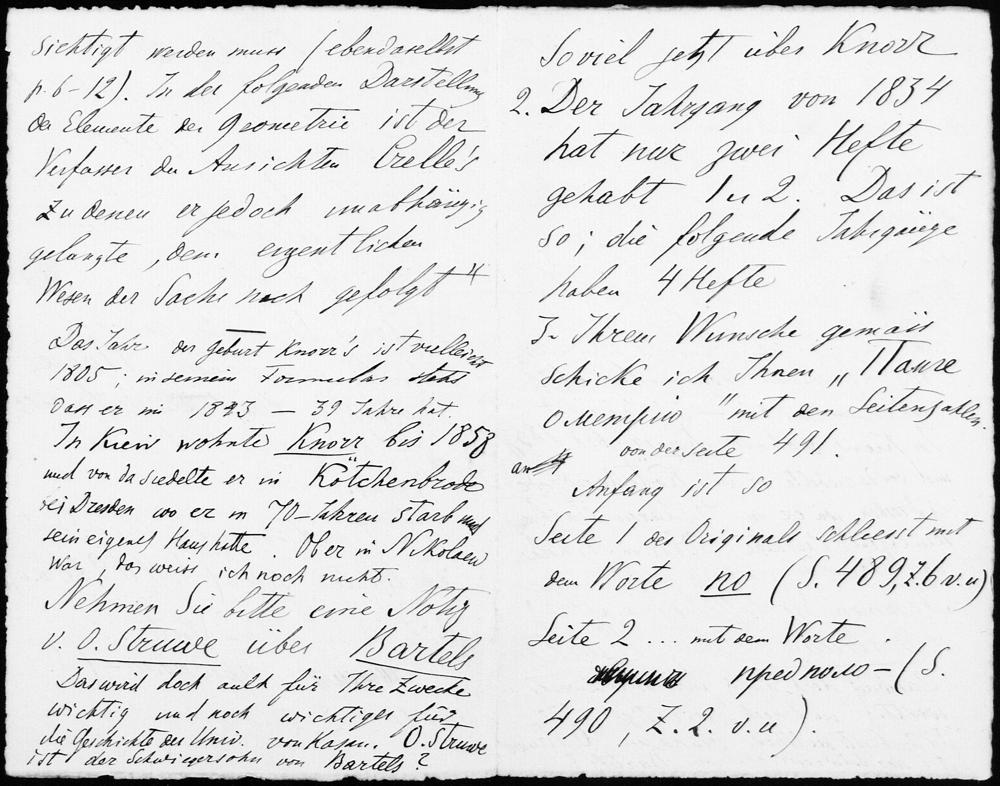 sichtigt werden muss (ebendaselbst
p. 6-12). In der folgenden Darstellung
der Elemente der Geometrie ist der
Verfasser den Ansichten Crelle's
zu denen er jedoch unabhängig
gelangte, dem eigentlichen
Wesen der Sache nach gefolgt"
Das Jahr der Geburt Knorr's ist vielleicht
1805; in seinem Formular steht
dass er im 1843 — 39 Jahre hat.
In Kiew wohnte Knorr bis 1858
und von da siedelte er in Kötchenbroda
bei Dresden wo er in 70-Jahren starb und
sein eigenes Haus hatte. Ob er in Nikolaew
war, das weiss ich noch nicht.
Nehmen Sie bitte eine Notiz
v. O. Struwe über Bartels
Das wird doch auch für Ihre Zwecke
wichtig und noch wichtiger für
die Geschichte der Univ. von Kasan. O. Struwe
ist der Schwiegersohn von Bartels?
Soviel jetzt über Knorr
2. Der Jahrgang von 1834
hat nur zwei Hefte
gehabt 1 u 2. Das ist
so; die folgende Jahrgänge
haben 4 Hefte
3. Ihrem Wunsche gemäss
schicke ich Ihnen „Пангео
метрію" mit den Seitenzahlen
von der Seite 491.
Anfang ist so
Seite 1 des Originals schliesst mit
dem Worte по (S. 489, Z. 6 v. u)
Seite 2 ... mit dem Worte
предполо- (S.
490, Z. 2. v. u).